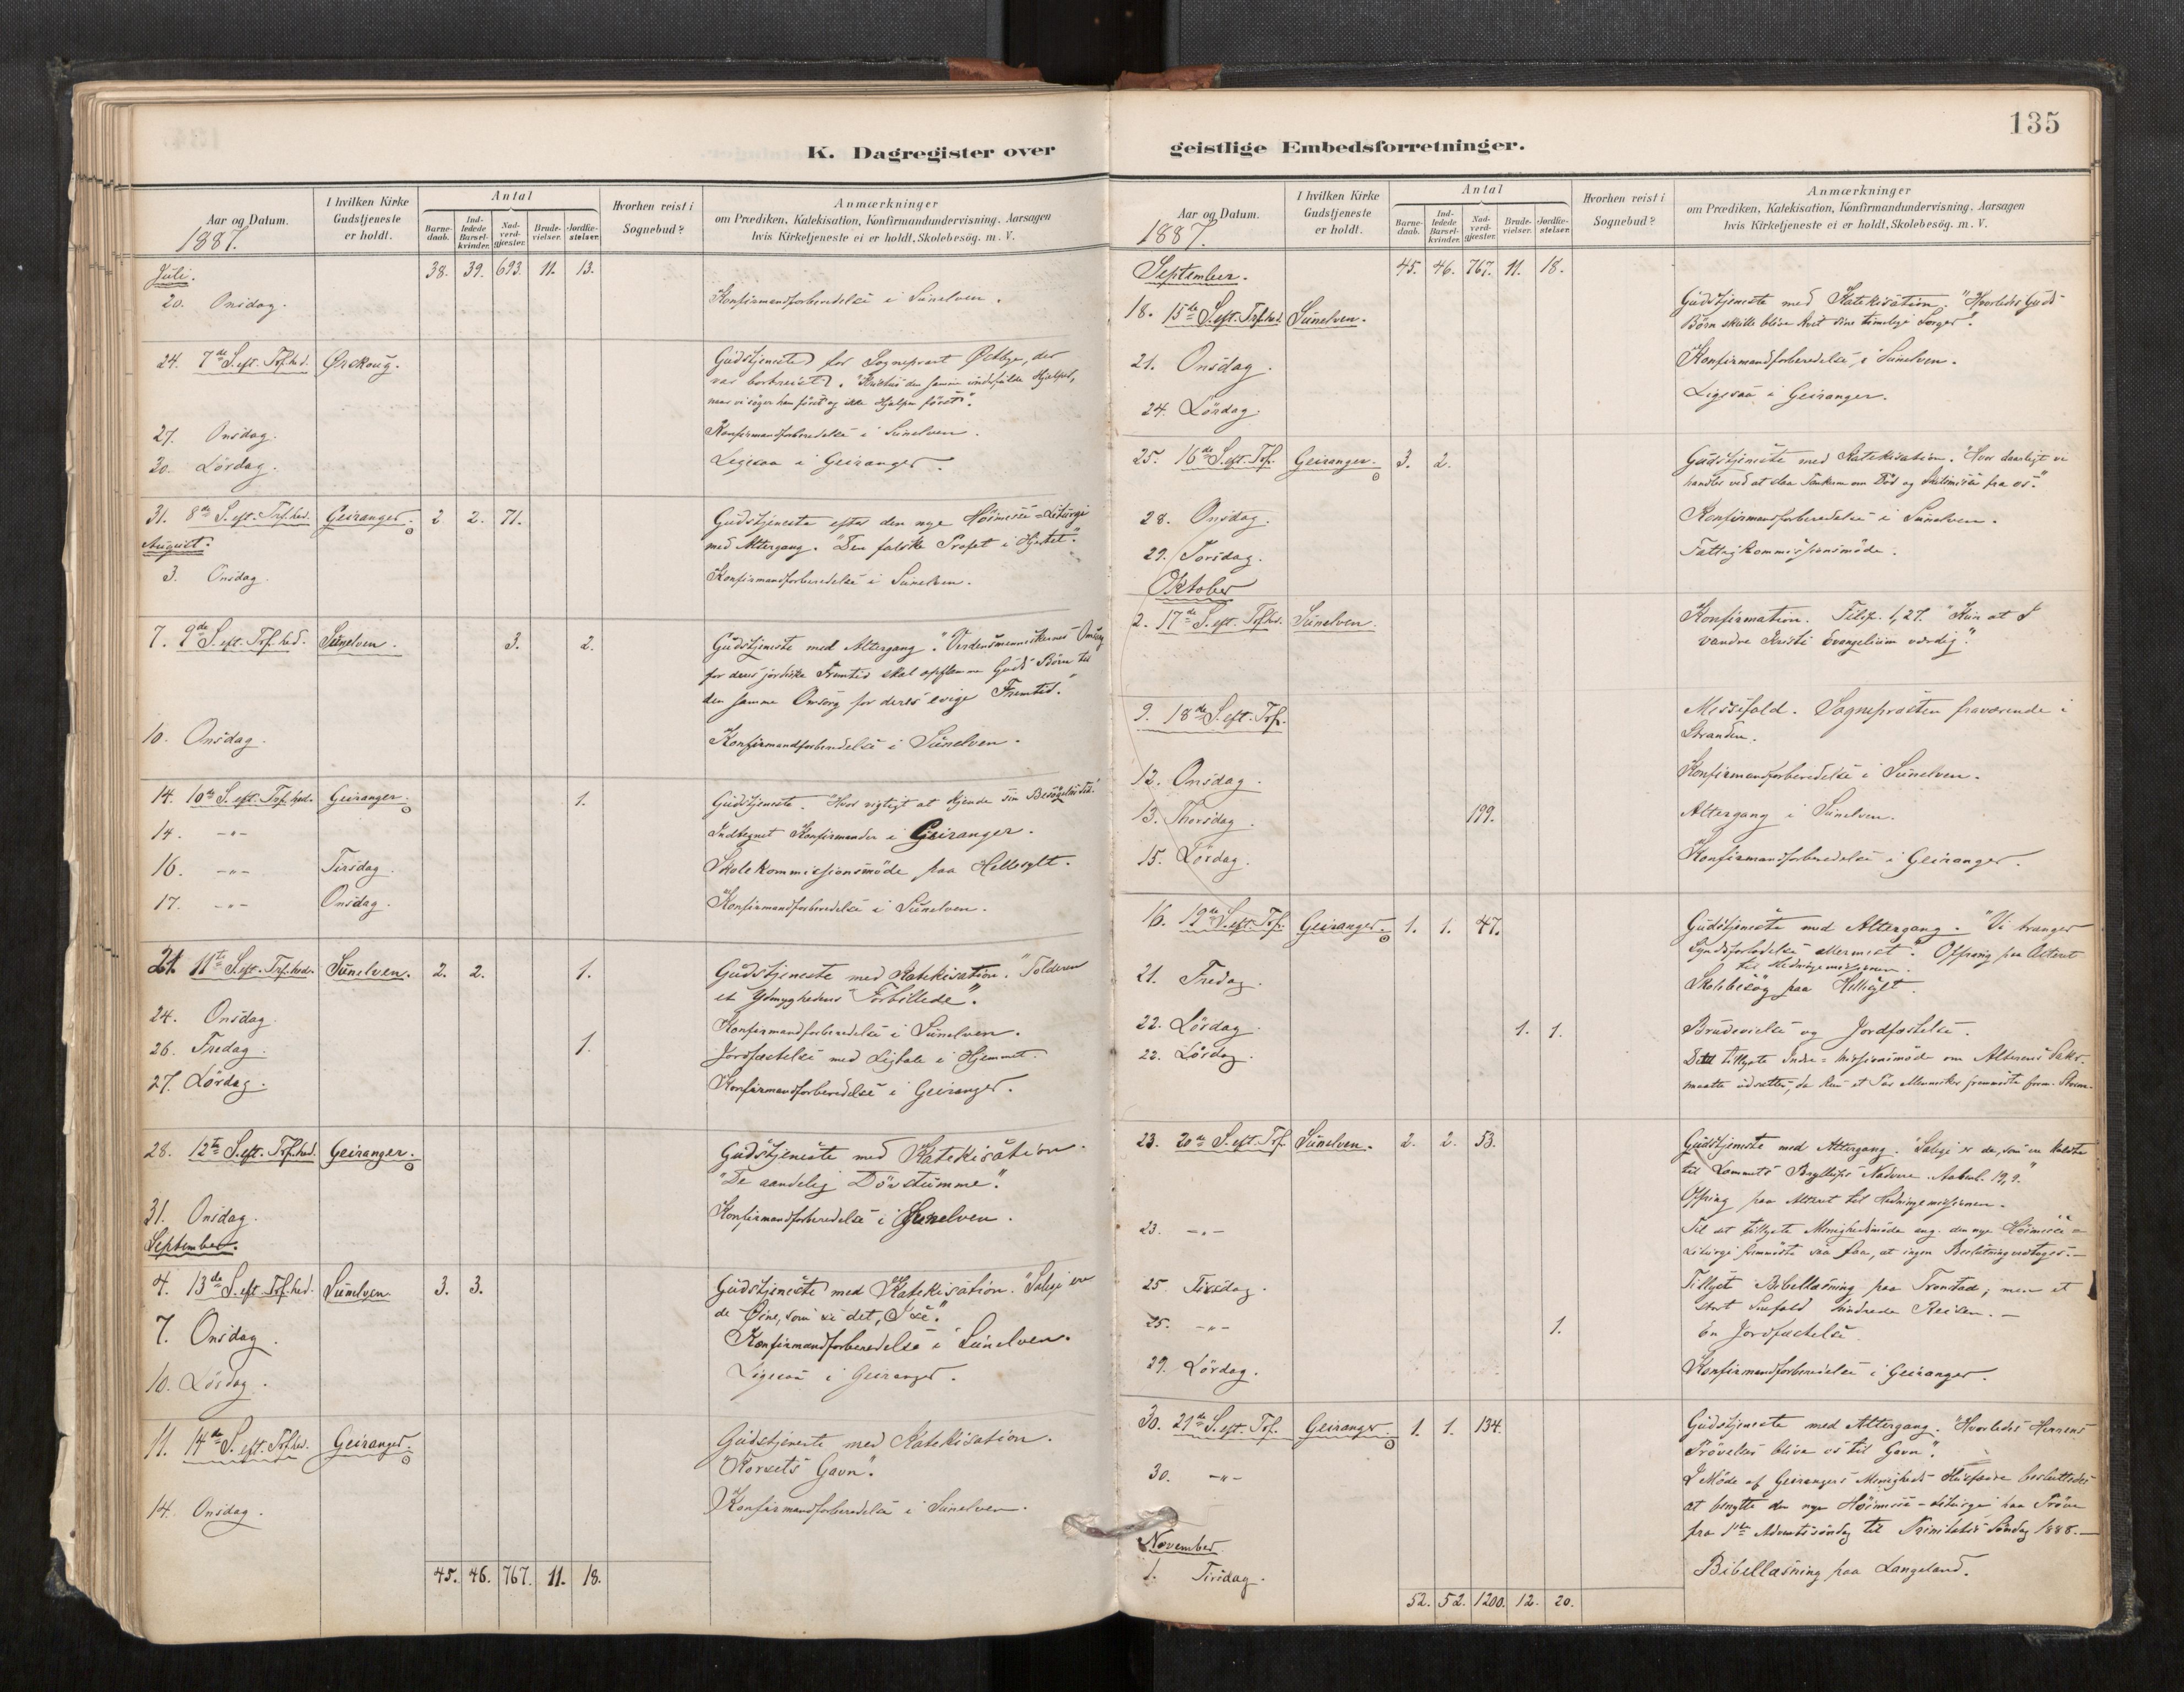 K. Dagregister over
Aar og Datum.
1887.
I hvilken Kirke
Gudstjeneste
er holdt.
Antal
Barne-
daab.
Ind-
ledede
Barsel-
kvinder.
Nad-
verd-
gjæster.
Brude-
vielser.
Jordfæ-
stelser.
Hvorhen reist i
Sognebud?
Anmærkninger
om Prædiken, Katekisation, Konfirmandundervisning. Aarsagen
hvis Kirketjeneste ei er holdt, Skolebesög. m. V.
Juli. 38. 39. 693. 11. 13.
20. Onsdag. Konfirmandforberedelse i Sunelven.
24. 7de S. eft. Trf.hed. Ørskoug. Gudstjeneste for Sogneprest Østbye, der
var bortreist. "Kristus den samme underfulde Hjælper,
naar vi søger ham först og ikke Hjælpen först".
27. Onsdag. Konfirmandforberedelse i Sunelven.
30. Lördag. Ligesaa i Geiranger.
31. 8de S. eft. Trf.hed. Geiranger. 2 2. 71. Gudstjeneste efter den nye Höimesse-Liturgi
med Altergang. "Den falske Profet i Hjertet".
August.
3. Onsdag. Konfirmandforberedelse i Sunelven.
7. 9de S. eft. Trf.hed. Sunelven. 3. 2. Gudstjeneste med Altergang. "Verdensmenneskernes Omsorg
for deres jordiske Fremtid skal opflamme Guds Börn til
den samme Omsorg for deres evige Fremtid."
10. Onsdag. Konfirmandforberedelse i Sunelven.
14. 10de S. eft. Trf.hed. Geiranger. 1. Gudstjeneste. "Hvor vigtigt at kjende sin Besøgelsestid."
14. -"- Indtegnet Konfirmander i Geiranger.
16. -"- Tirsdag. Skolekommissionsmöde paa Hellesylt.
17. -"- Onsdag. Konfirmandforberedelse i Sunelven.
21. 11te S. eft. Trf.hed. Sunelven. 2. 2. 1. Gudstjeneste med Katekisation. "Tolderen
et Ydmyghedens Forbillede".
24. Onsdag. Konfirmandforberedelse i Sunelven.
26. Fredag. 1. Jordfæstelse med Ligtale i Hjemmet.
27. Lördag. Konfirmandforberedelse i Geiranger.
28. 12te S. eft. Trf.hed. Geiranger. Gudstjeneste med Katekisation.
"De aandelig Dövstumme".
31. Onsdag. Konfirmandforberedelse i Sunelven.
September.
4. 13de S. eft. Trf.hed. Sunelven 3. 3. Gudstjeneste med Katekisation. "Salige ere
de Øine, som se det, I se".
7. Onsdag. Konfirmandforberedelse i Sunelven.
10. Lördag. Ligesaa i Geiranger.
11. 14de S. eft. Trf.hed. Geiranger. Gudstjeneste med Katekisation.
"Korsets Gavn".
14. Onsdag. Konfirmandforberedelse i Sunelven.
45. 46. 767. 11. 18.
135
geistlige Embedsforretninger.
Aar og Datum.
1887.
I hvilken Kirke
Gudstjeneste
er holdt.
Antal
Barne-
daab.
Ind-
ledede
Barsel-
kvinder.
Nad-
verd-
gjæster.
Brude-
vielser.
Jordfæ-
stelser.
Hvorhen reist i
Sognebud?
Anmærkninger
om Prædiken, Katekisation, Konfirmandundervisning, Aarsagen
hvis Kirketjeneste ei er holdt, Skolebesög. m. V.
September. 45. 46. 767. 11. 18.
18. 15de S. eft. Trf.hed. Sunelven. Gudstjeneste med Katekisation. "Hvorledes Guds
Börn skulle blive kvit sine timelige Sorger".
21. Onsdag. Konfirmandforberedelse i Sunelven.
24. Lördag. Ligesaa i Geiranger.
25. 16de S. eft. Trf. Geiranger. 3. 2. Gudstjeneste med Katekisation. "Hvor daarligt vi
handler ved at slaa Tankerne om Död og Skilsmisse fra os."
28. Onsdag. Konfirmandforberedelse i Sunelven.
29. Torsdag. Fattigkommissionsmöde.
Oktober
2. 17de S. eft. Trf.hed. Sunelven. Konfirmation. Filip. 1,27. "Kun at I
vandre Kristi Evangelium værdig".
9. 18de S. eft. Trf. Messefald. Sognepresten fraværende i
Stranden.
12. Onsdag. Konfirmandforberedelse i Sunelven.
13. Thorsdag. 199. Altergang i Sunelven.
15. Lördag. Konfirmandforberedelse i Geiranger.
16. 19de S. eft. Trf. Geiranger. 1. 1. 47. Gudstjeneste med Altergang. "Vi trænger
Syndsforladelse allermest". Offring paa Alteret
til Hedningemissionen.
21. Fredag. Skolebesög paa Hellesylt.
22. Lördag. 1. 1. Brudevielse og Jordfæstelse.
22. Lördag. Det tillyste Indre-Missionsmöde om Alterens Sakr.
maatte udsættes, da kun et Par Mennesker fremmödte form. Storm.
23. 20de S. eft. Trf. Sunelven. 2. 2. 53. Gudstjeneste med Altergang. "Salige er de, som ere kaldte
til Lammets Bryllups Nadvere. Aabenb. 19,9."
Offring paa Alteret til Hedningemissionen.
23. -"- Til et tillyst Menighedsmöde ang. den nye Höimesse-
Liturgi fremmödte saa faa, at ingen Beslutning vedtoges.—
25. Tirsdag. Tillyst Bibellæsning paa Tronstad; men et
stort Snefald hindrede Reisen.—
25. -"- 1. En Jordfæstelse.
29. Lördag. Konfirmandforberedelse i Geiranger.
30. 21de S. eft. Trf. Geiranger 1. 1. 134. Gudstjeneste med Altergang. "Hvorledes Herrens
Prövelser blive os til Gavn".
30. -"- I Möde af Geirangers Menigheds Husfædre besluttedes
at benytte den nye Höimesse-Liturgi paa Pröve
fra 1ste Adventssöndag til Trinitatis Söndag 1888.—
November
1. Tirsdag. Bibellæsning paa Langeland.
52. 52. 1200. 12. 20.